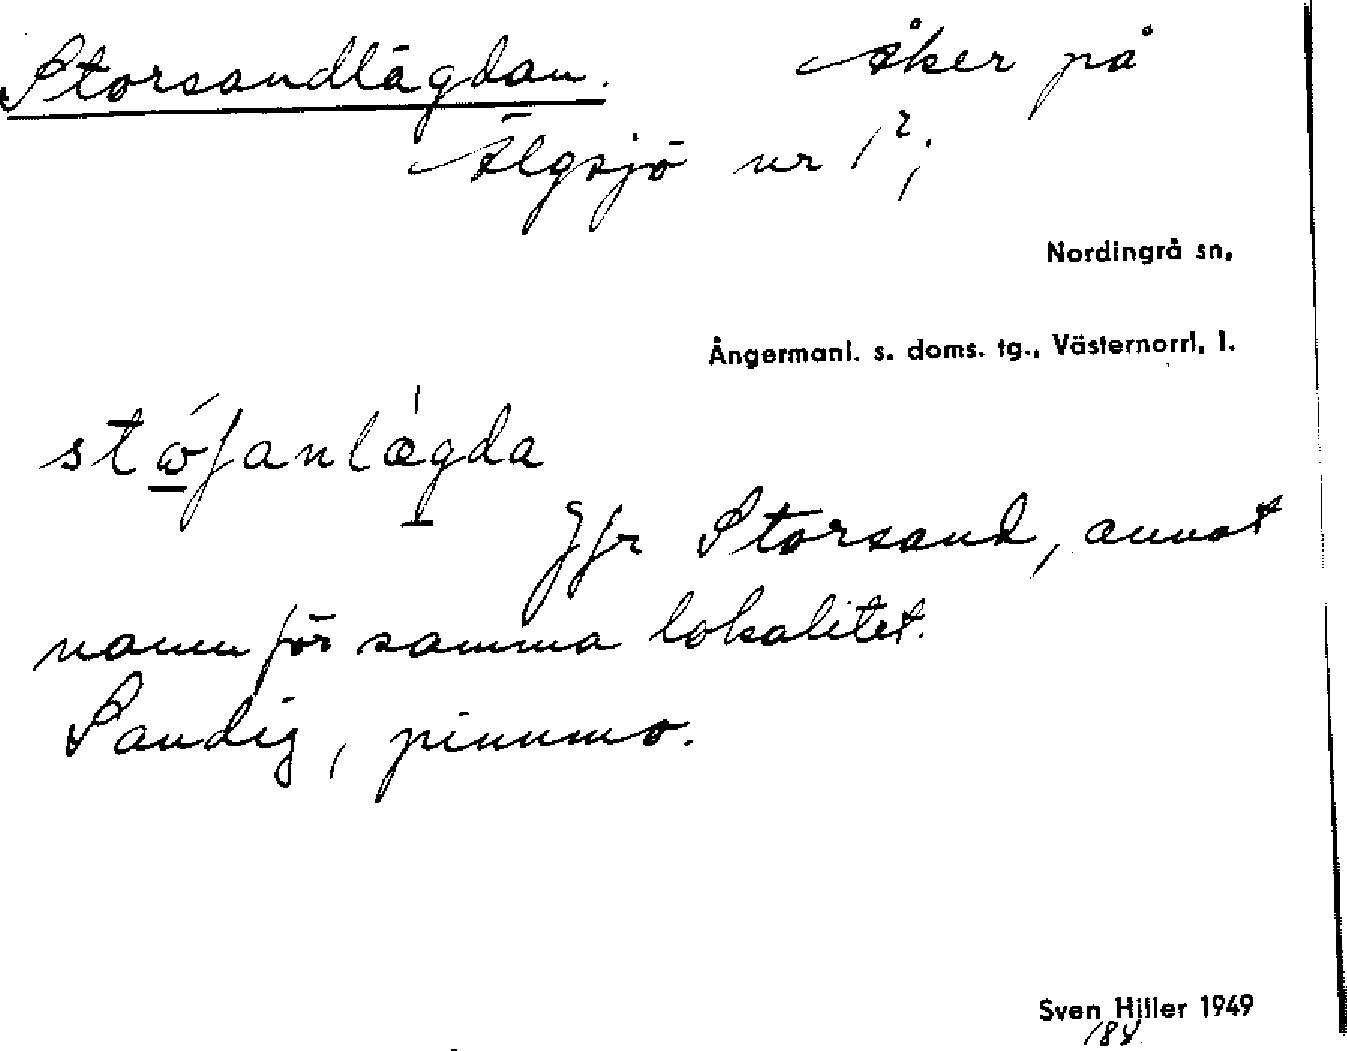 Storsandlägdan. Åker på
Älgsjö nr 1²;
Nordingrå sn,
Ångermanl. s. doms. tg., Västernorrl. l.
stώ̲ʃanlǽ̲gda
Jfr Storsand, annat
namn för samma lokalitet.
Sandig, pinnmo.
Sven Hiller 1949
184